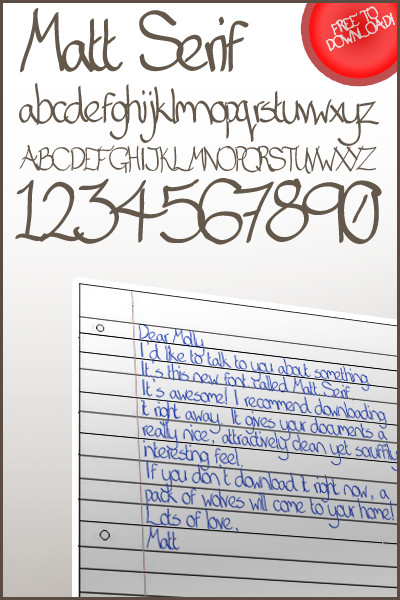 Matt Serif
FREE TO
DOWNLOAD!
abcdefghijklmnopqrstuvwxyz
ABCDEFGHIJKLMNOPQRSTUVWXYZ
1234567890
Dear Molly,
I'd like to talk to you about something.
It's this new font called Matt Serif.
It's awesome! I recommend downloading
it right away. It gives your documents a
really nice, attractively clean yet scruffily
interesting feel.
If you don't download it right now, a
pack of wolves will come to your home!
Lots of love,
Matt